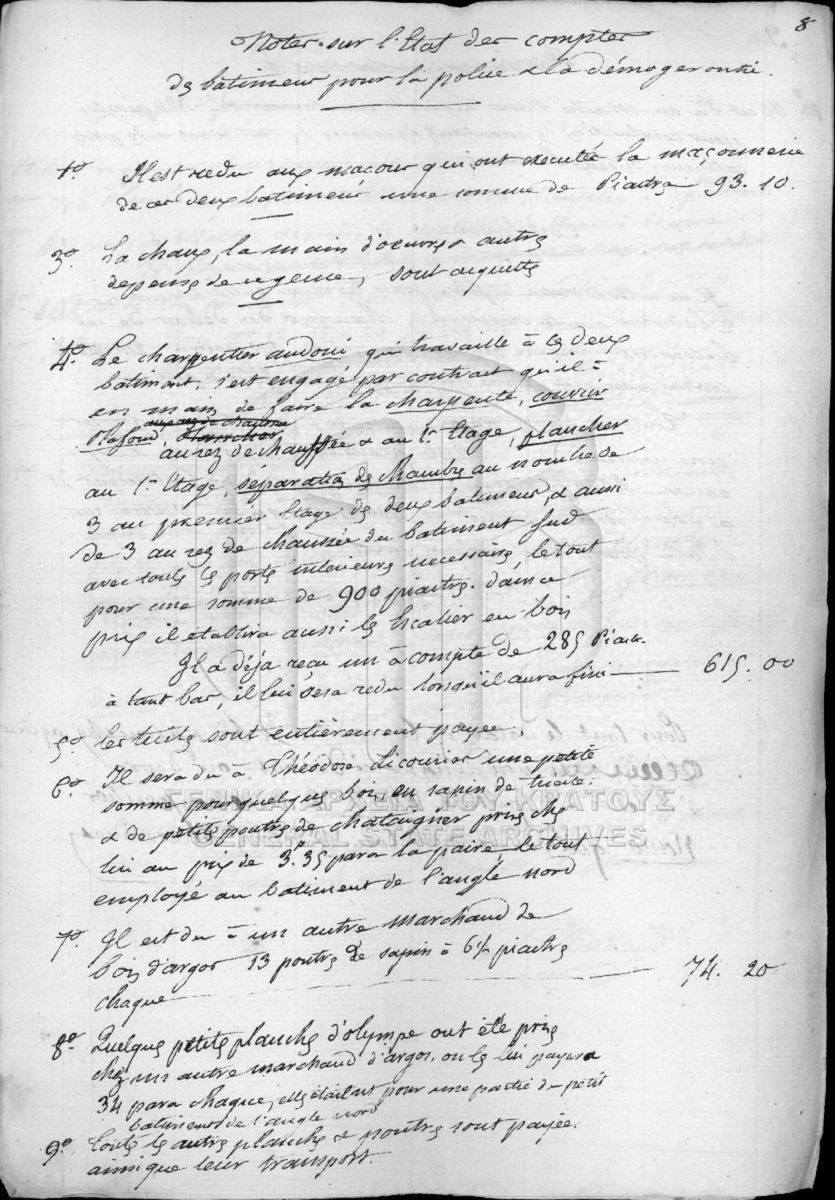 8
Notes sur l'Etat des comptes
des batimens pour la police & la démogerontie.
1º Il est redu aux maçons qui ont executés la maçonnerie
de ces deux batimens une somme de Piastres 93.10.
3º La chaux, la main d'oeuvre & autres
depenses de urgence, sont acquittés
4º Le charpentier audoni qui travaille à ces deux
batimens, s'est engagé par contrat qu'il a
en main de faire la charpente, couvrir
Plafond, plancher
au rez de chaussée & au 1er Etage, plancher
au 1er Etage, séparation des Chambres au nombre de
3 au premier Etage des deux batimens, & aussi
de 3 au rez de chaussée du batiment Sud
avec touts les ports interieurs necessaires, le tout
pour une somme de 900 piastres. dans ce
prix il établira aussi les Escalier en bois
Il a déja reçu un à compte de 285 Piast.
à tant bas, il lui sera redu lorsqu'il aura fini 615.00
5º les tuils sont entièrement payée.
6º Il sera du à Théodose une petite
somme pour quelques bois en sapin de trieste
& de petits poutres de chataigner pris chez
lui au prix de 3.p 35 paras la paire le tout
employé au batiment de l'angle nord
ΓΕΝΙΚΑ ΑΡΧΕΙΑ ΤΟΥ ΚΡΑΤΟΥΣ
GENERAL STATE ARCHIVES
7º Il est du à un autre marchand de
bois d'argos 13 poutres de sapin à 6½ piastres
chaque 74. 20
8º Quelques petits planches d'olympe ont été pris
chez un autre marchand d'argos, on les lui payera
34 para chaque, elles étaient pour une partie du petit
batiment de l'angle nord
9º Touts les autres planches & poutres sont payée.
ainsi que leur transport.